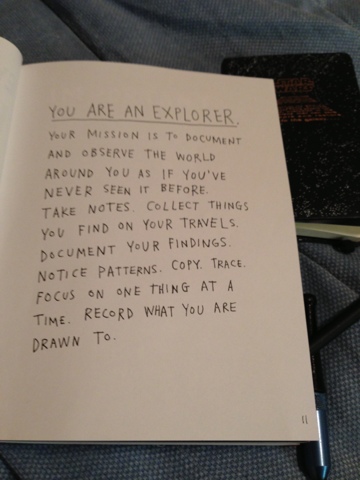 YOU ARE AN EXPLORER.
YOUR MISSION IS TO DOCUMENT
AND OBSERVE THE WORLD
AROUND YOU AS IF YOU'VE
NEVER SEEN IT BEFORE.
TAKE NOTES. COLLECT THINGS
YOU FIND ON YOUR TRAVELS.
DOCUMENT YOUR FINDINGS.
NOTICE PATTERNS. COPY. TRACE.
FOCUS ON ONE THING AT A
TIME. RECORD WHAT YOU ARE
DRAWN TO.
11